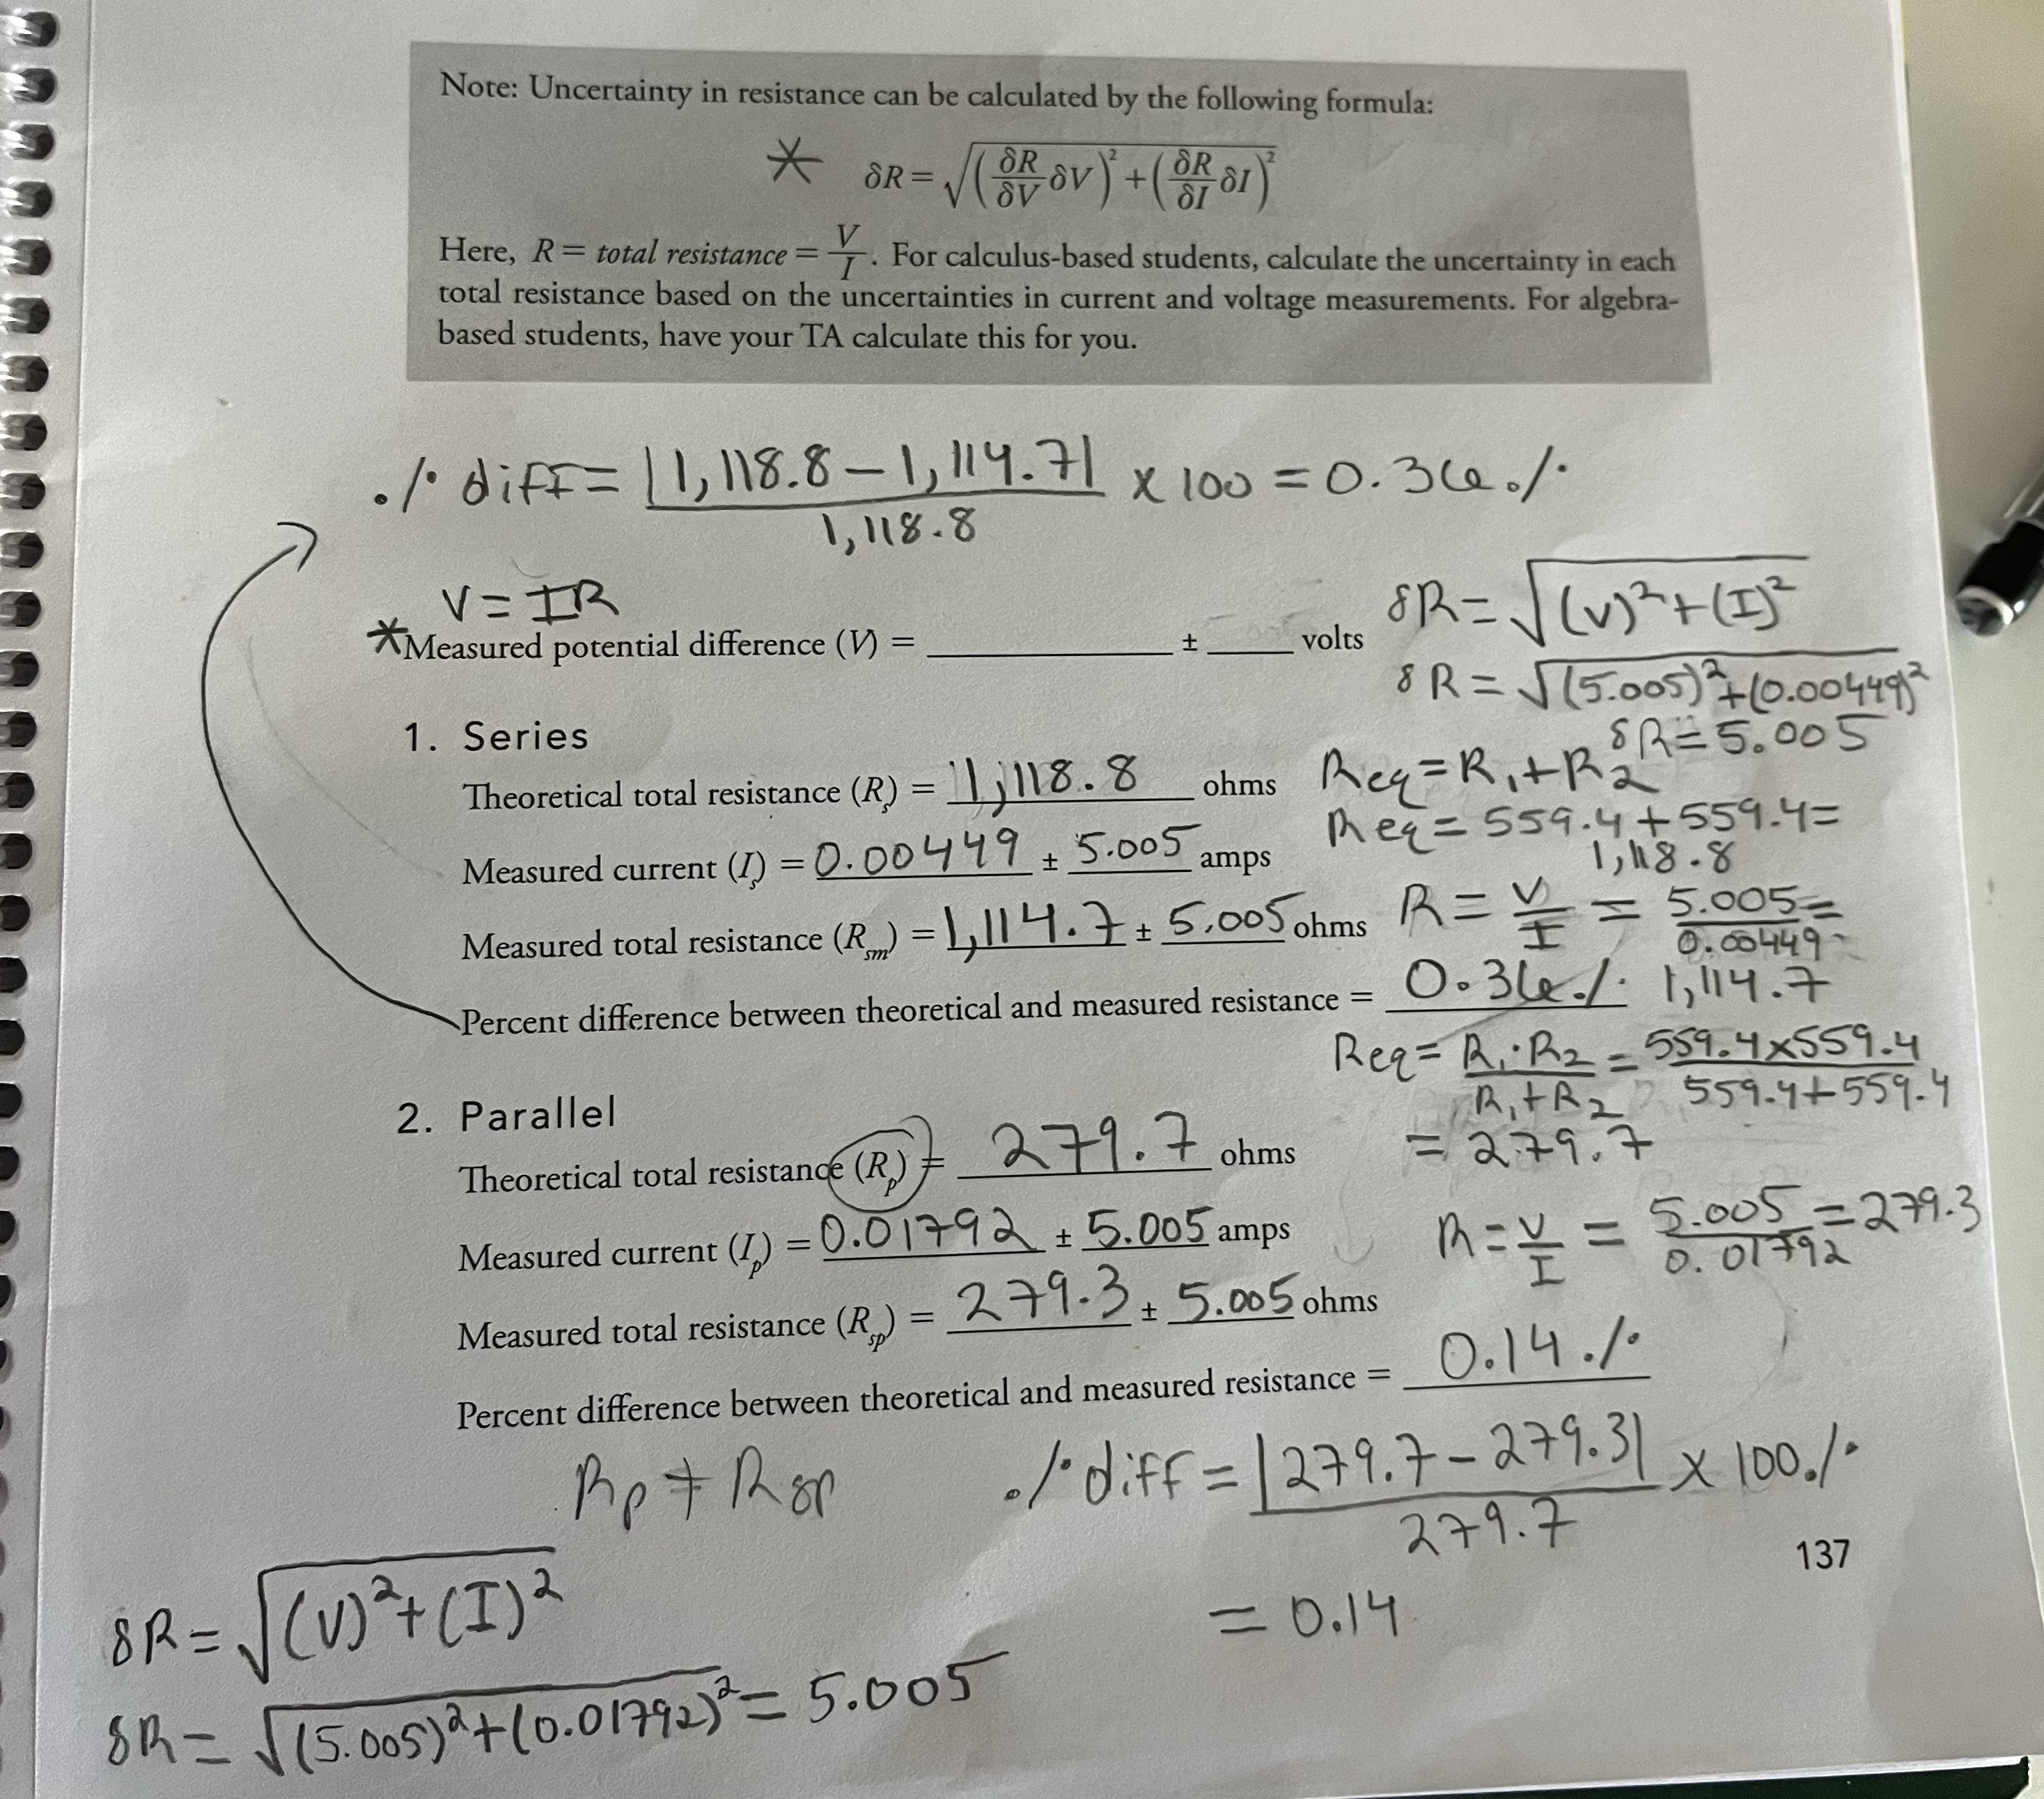 Note: Uncertainty in resistance can be calculated by the following formula:
* δR = √((δR/δV δV)² + (δR/δI δI)²)
Here, R = total resistance = V/I. For calculus-based students, calculate the uncertainty in each
total resistance based on the uncertainties in current and voltage measurements. For algebra-
based students, have your TA calculate this for you.
% diff = |1,118.8 − 1,114.7| / 1,118.8 × 100 = 0.36 %
V = IR
*Measured potential difference (V) = ____ ± ____ volts
δR = √((V)² + (I)²)
δR = √((5.005)² + (0.00449)²)
δR = 5.005
1. Series
Theoretical total resistance (Rs) = 1,118.8 ohms
Req = R1 + R2
Req = 559.4 + 559.4 =
1,118.8
Measured current (Is) = 0.00449 ± 5.005 amps
Measured total resistance (Rsm) = 1,114.7 ± 5.005 ohms
R = V/I = 5.005/0.00449 =
1,114.7
Percent difference between theoretical and measured resistance = 0.36 %
Req = R1·R2 / R1+R2 = 559.4×559.4 / 559.4+559.4
= 279.7
2. Parallel
Theoretical total resistance (Rp) = 279.7 ohms
Measured current (Ip) = 0.01792 ± 5.005 amps
R = V/I = 5.005/0.01792 = 279.3
Measured total resistance (Rsp) = 279.3 ± 5.005 ohms
Percent difference between theoretical and measured resistance = 0.14 %
Rp ≠ Rsp
% diff = |279.7 − 279.3| / 279.7 × 100 %
= 0.14
137
δR = √((V)² + (I)²)
δR = √((5.005)² + (0.01792)²) = 5.005